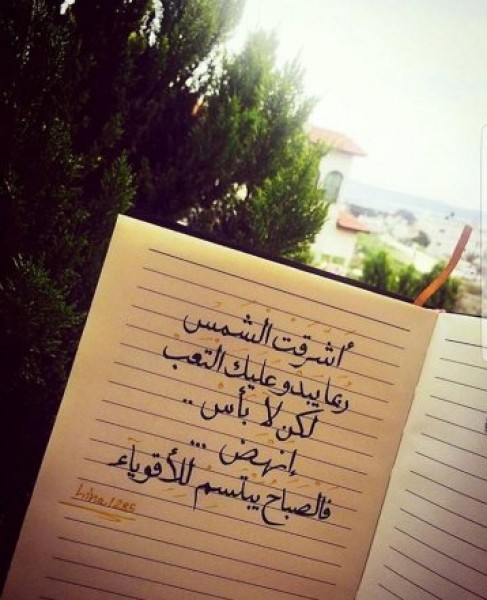 أشرقت الشمس
ربما يبدو عليك التعب
لكن لا بأس ..
إنهض ...
فالصباح يبتسم للأقوياء